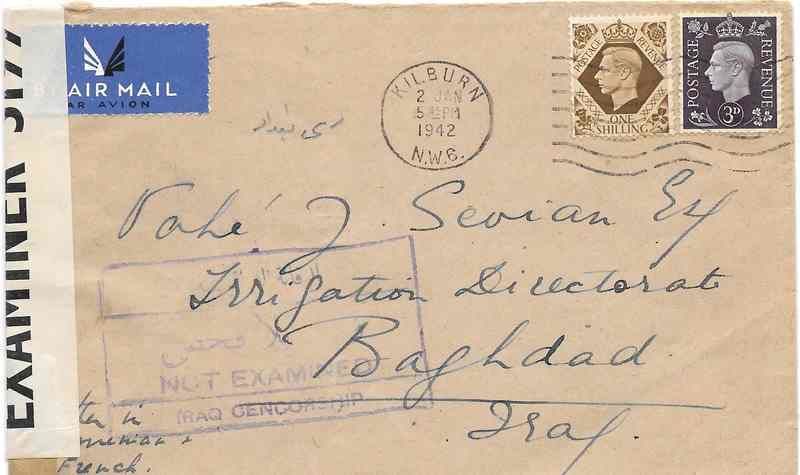 EXAMINER 5177
BY AIR MAIL
PAR AVION
KILBURN
2 JAN
1942
N.W.6.
POSTAGE REVENUE
ONE
SHILLING
POSTAGE REVENUE
3D
بغداد
Vahé J. Sevian Esq
Irrigation Directorate
Baghdad
Iraq.
NOT EXAMINED
IRAQ CENCORSHIP
in
French.